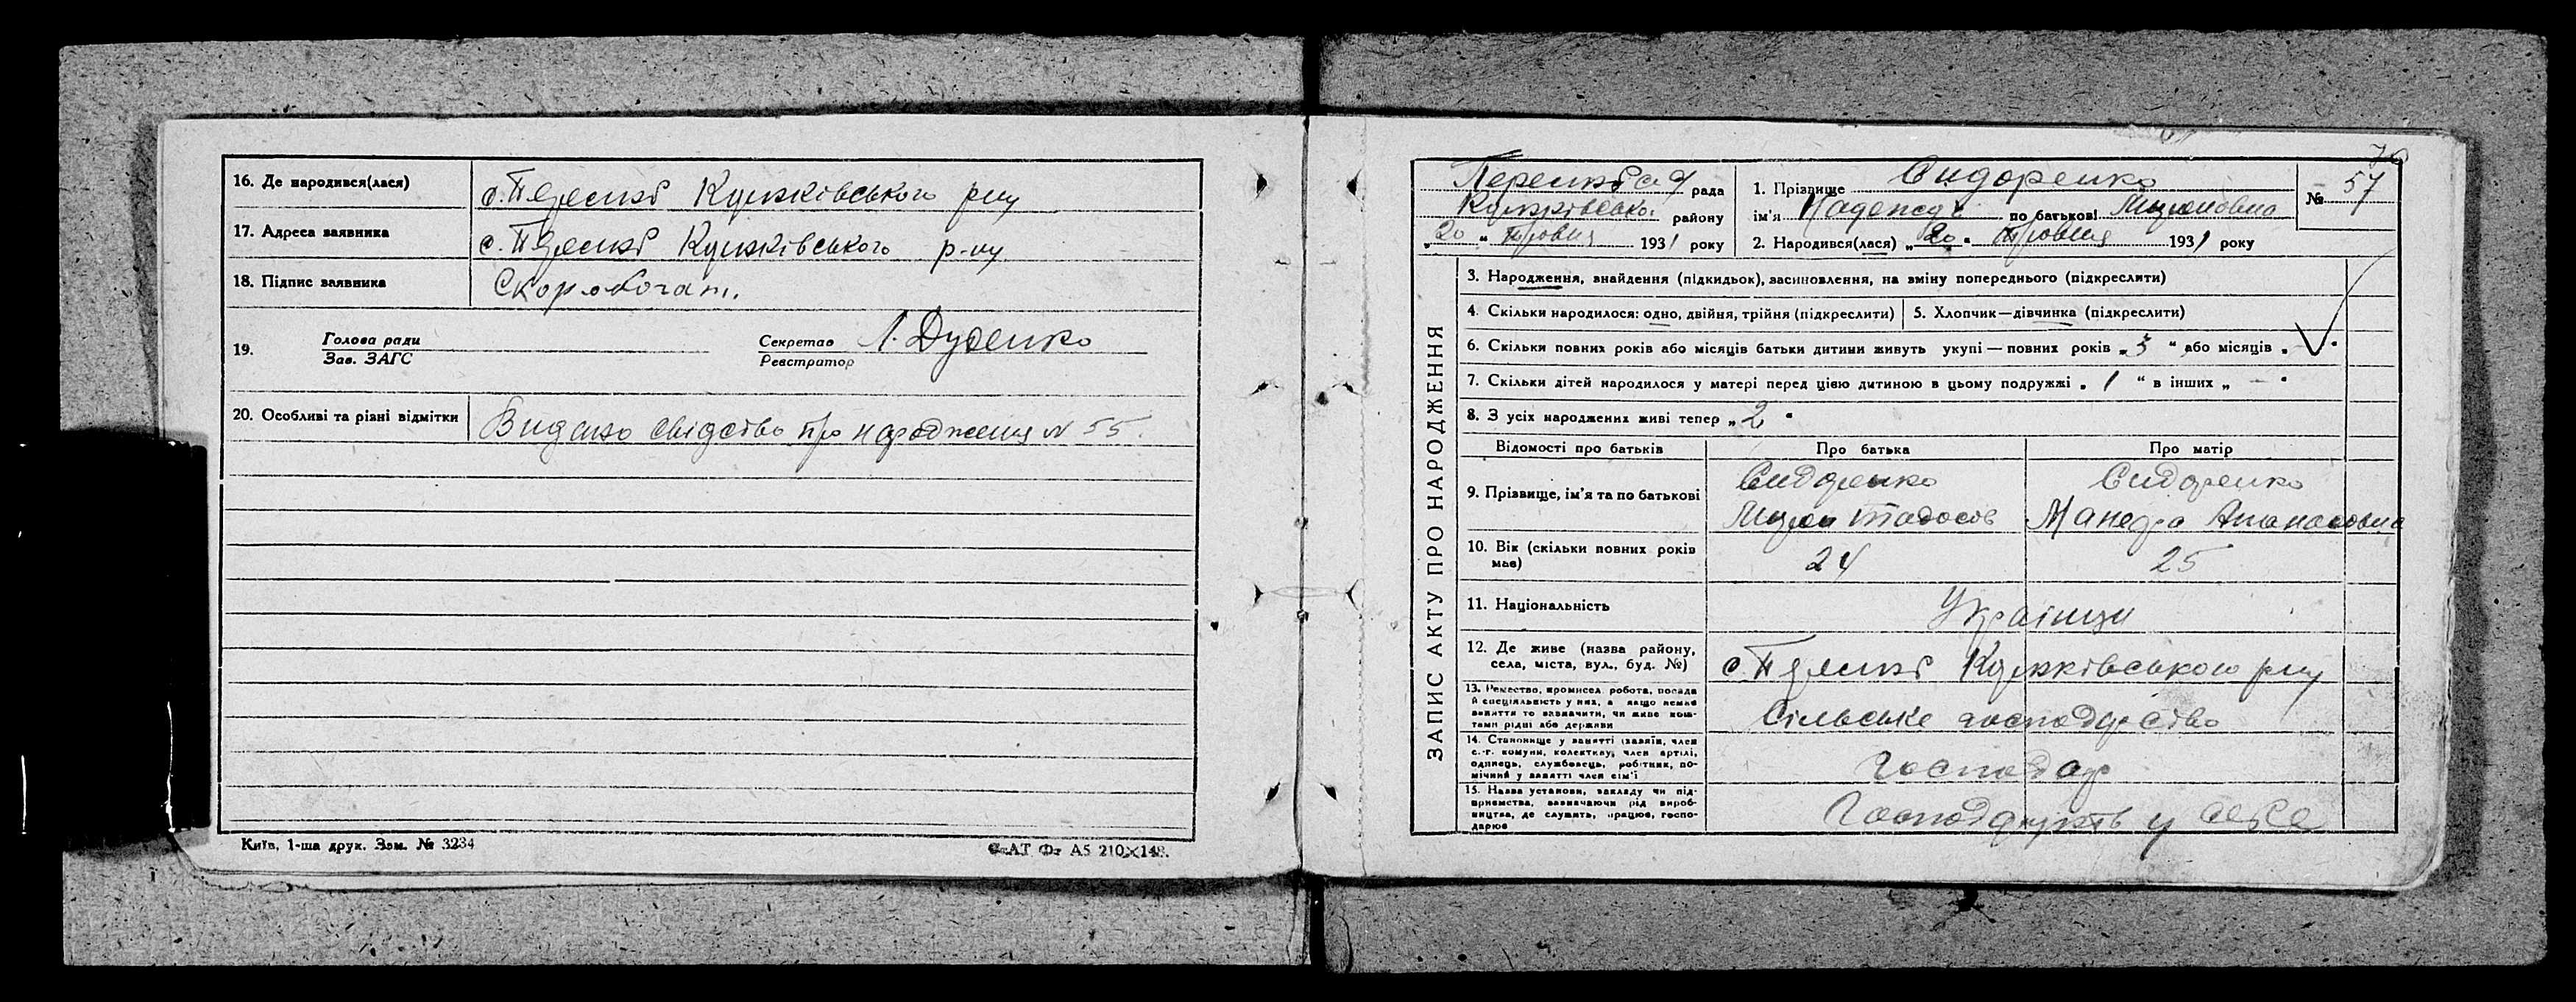 16. Де народився(лася)
Кулжківського р-ну
17. Адреса заявника
Кулжківського р-ну
18. Підпис заявника
Скоробогат.
19.
Голова ради
Зав. ЗАГС
Секретар
Реєстратор
Л. Дуденко
20. Особливі та різні відмітки
Видано свідоцтво про народження № 55.
Київ, 1-ша друк. Зам. № 3234
А5 210×148.
76
рада
району
„20“ травня 1931 року
1. Прізвище Сидоренко
ім'я Надежда по батькові Мироновна
2. Народився(лася) „20“ травня 1931 року
№ 57
ЗАПИС АКТУ ПРО НАРОДЖЕННЯ
3. Народження, знайдення (підкидьок), засиновлення, на зміну попереднього (підкреслити)
4. Скільки народилося: одно, двійня, трійня (підкреслити)
5. Хлопчик—дівчинка (підкреслити)
6. Скільки повних років або місяців батьки дитини живуть укупі — повних років „3“ або місяців „ “
7. Скільки дітей народилося у матері перед цією дитиною в цьому подружжі „1“ в інших „—“
8. З усіх народжених живі тепер „2“
Відомості про батьків
Про батька
Про матір
9. Прізвище, ім'я та по батькові
Сидоренко
Мирон Тадосов
Сидоренко
10. Вік (скільки повних років має)
24
25
11. Національність
Українци
12. Де живе (назва району,
села, міста, вул., буд. №)
13. Ремество, промисел, робота, посада
й спеціяльність у них, а якщо немає
заняття то зазначити, чи живе кош-
тами рідні або держави
Сільське господарство
14. Становище у занятті (хазяїн, член
с.-г. комуни, колективу, член артілі,
одинець, службовець, робітник, по-
мічний у занятті член сім'ї
Господар
15. Назва установи, закладу чи під-
приємства, зазначаючи рід вироб-
ництва, де служить, працює, госпо-
дарює
Господарують у себе